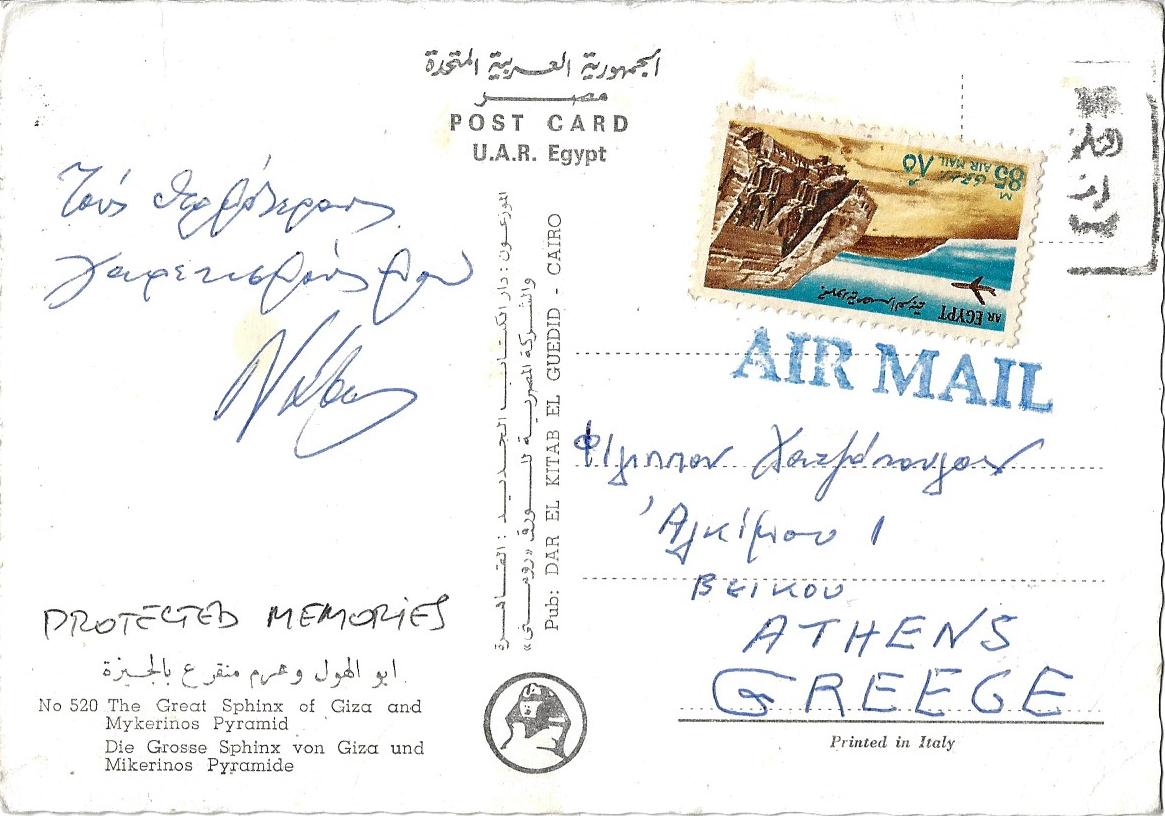 الجمهورية العربية المتحدة
مصر
POST CARD
U.A.R. Egypt
Τούς θερμότερους
χαιρετισμούς μου
PROTECTED MEMORIES
ابو الهول وهرم منقرع بالجيزة
No 520 The Great Sphinx of Giza and
Mykerinos Pyramid
Die Grosse Sphinx von Giza und
Mikerinos Pyramide
الموزعون : دار الكتاب الجديد : القاهرة
والشركة المصرية للورق
Pub: DAR EL KITAB EL GUEDID - CAIRO
M
85 ٨٥
AIR MAIL
AR EGYPT
AIR MAIL
Φίλιππον
Ἀλκίμου 1
ΒΕΙΚΟΥ
ATHENS
GREECE
Printed in Italy